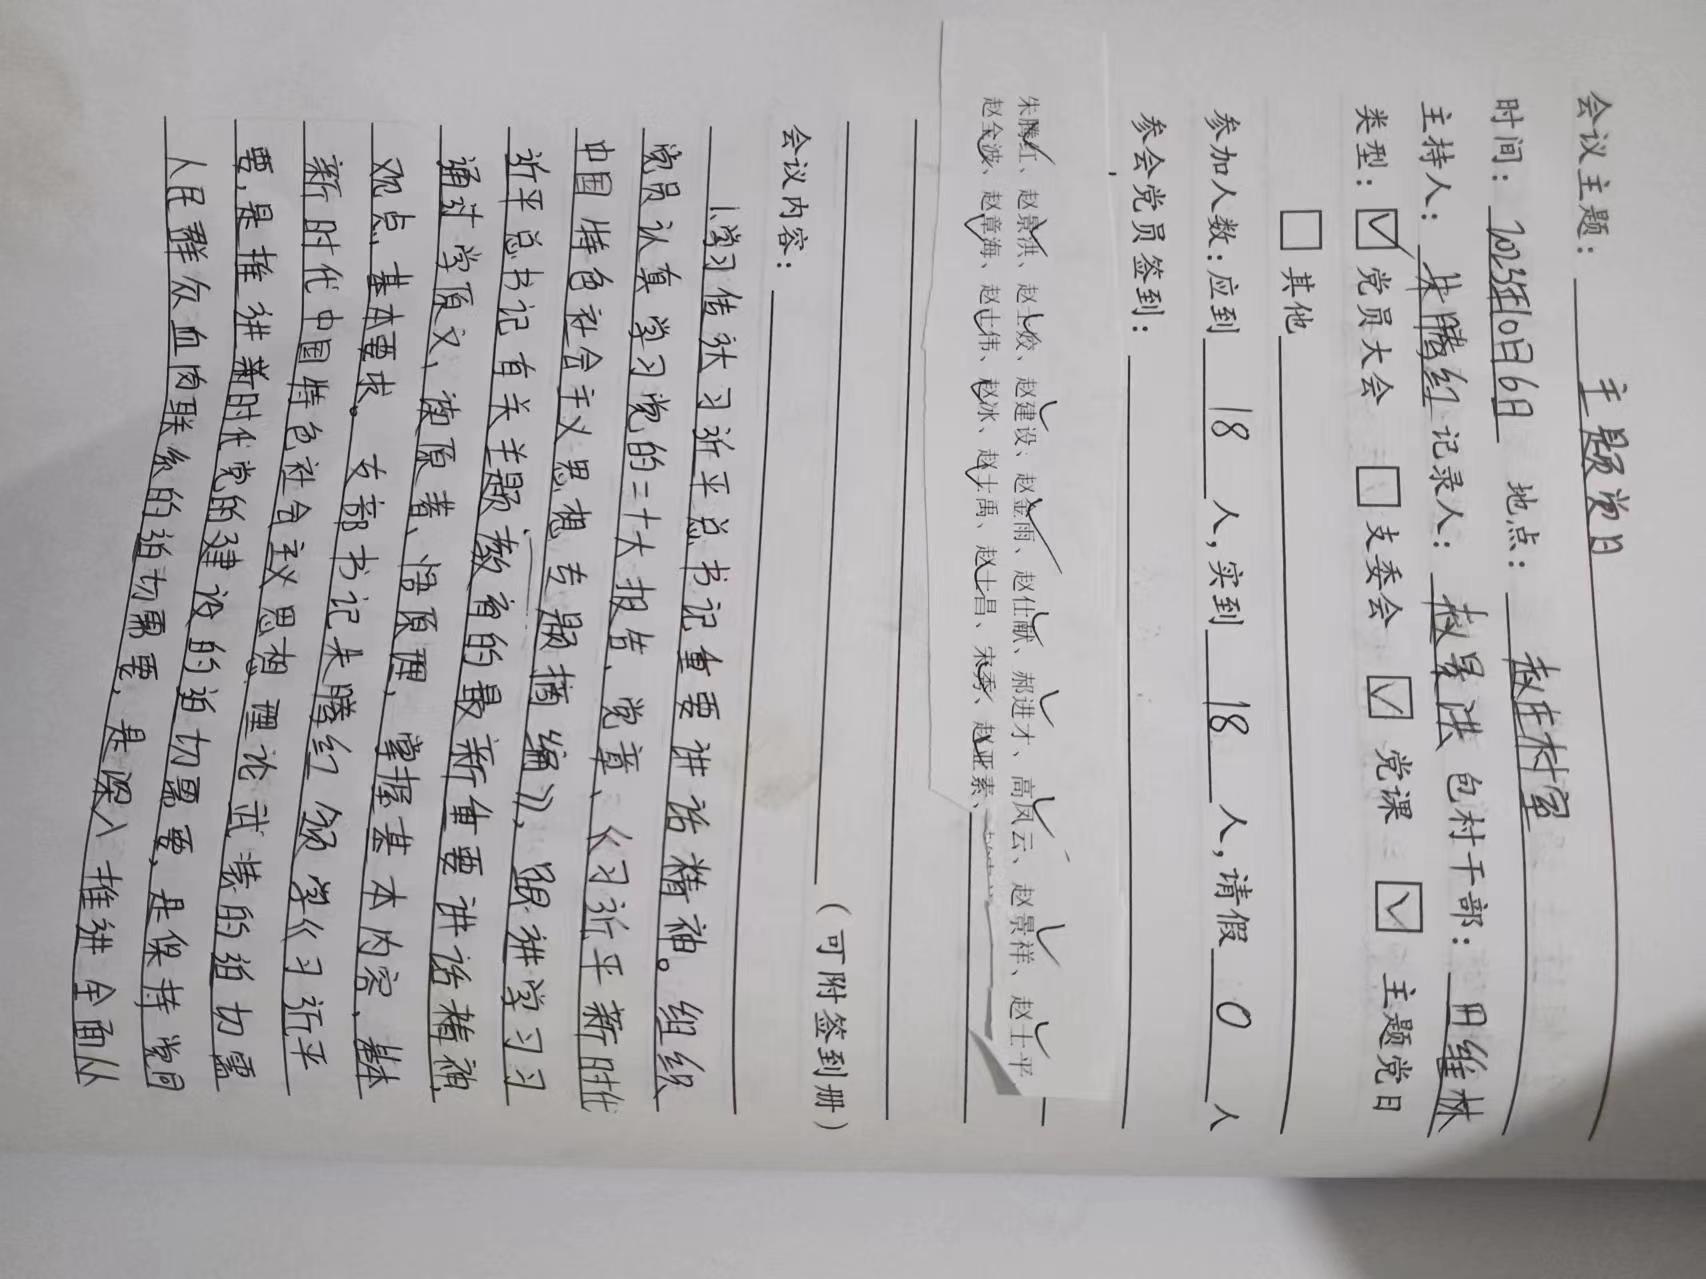 会议主题：主题党日
时间：2023年10日6日 地点：赵庄村室
主持人：朱腾红 记录人：赵景洪 包村干部：田维林
类型：☑党员大会 □支委会 ☑党课 ☑主题党日
□其他
参加人数：应到18人，实到18人，请假0人
参会党员签到：
朱腾红、赵景洪、赵士姣、赵建设、赵金雨、赵仕献、郝进才、高凤云、赵景祥、赵士平
赵全波、赵章海、赵士伟、赵冰、赵士禹、赵士昌、宋秀、赵亚素、
（可附签到册）
会议内容：
1.学习传达习近平总书记重要讲话精神。组织
党员认真学习党的二十大报告、党章、《习近平新时代
中国特色社会主义思想专题摘编》，跟进学习习
近平总书记有关主题教育的最新重要讲话精神
通过学原文、读原著、悟原理，掌握基本内容、基本
观点、基本要求。支部书记朱腾红领学《习近平
新时代中国特色社会主义思想理论武装的迫切需
要，是推进新时代党的建设的迫切需要，是保持党同
人民群众血肉联系的迫切需要，是深入推进全面从